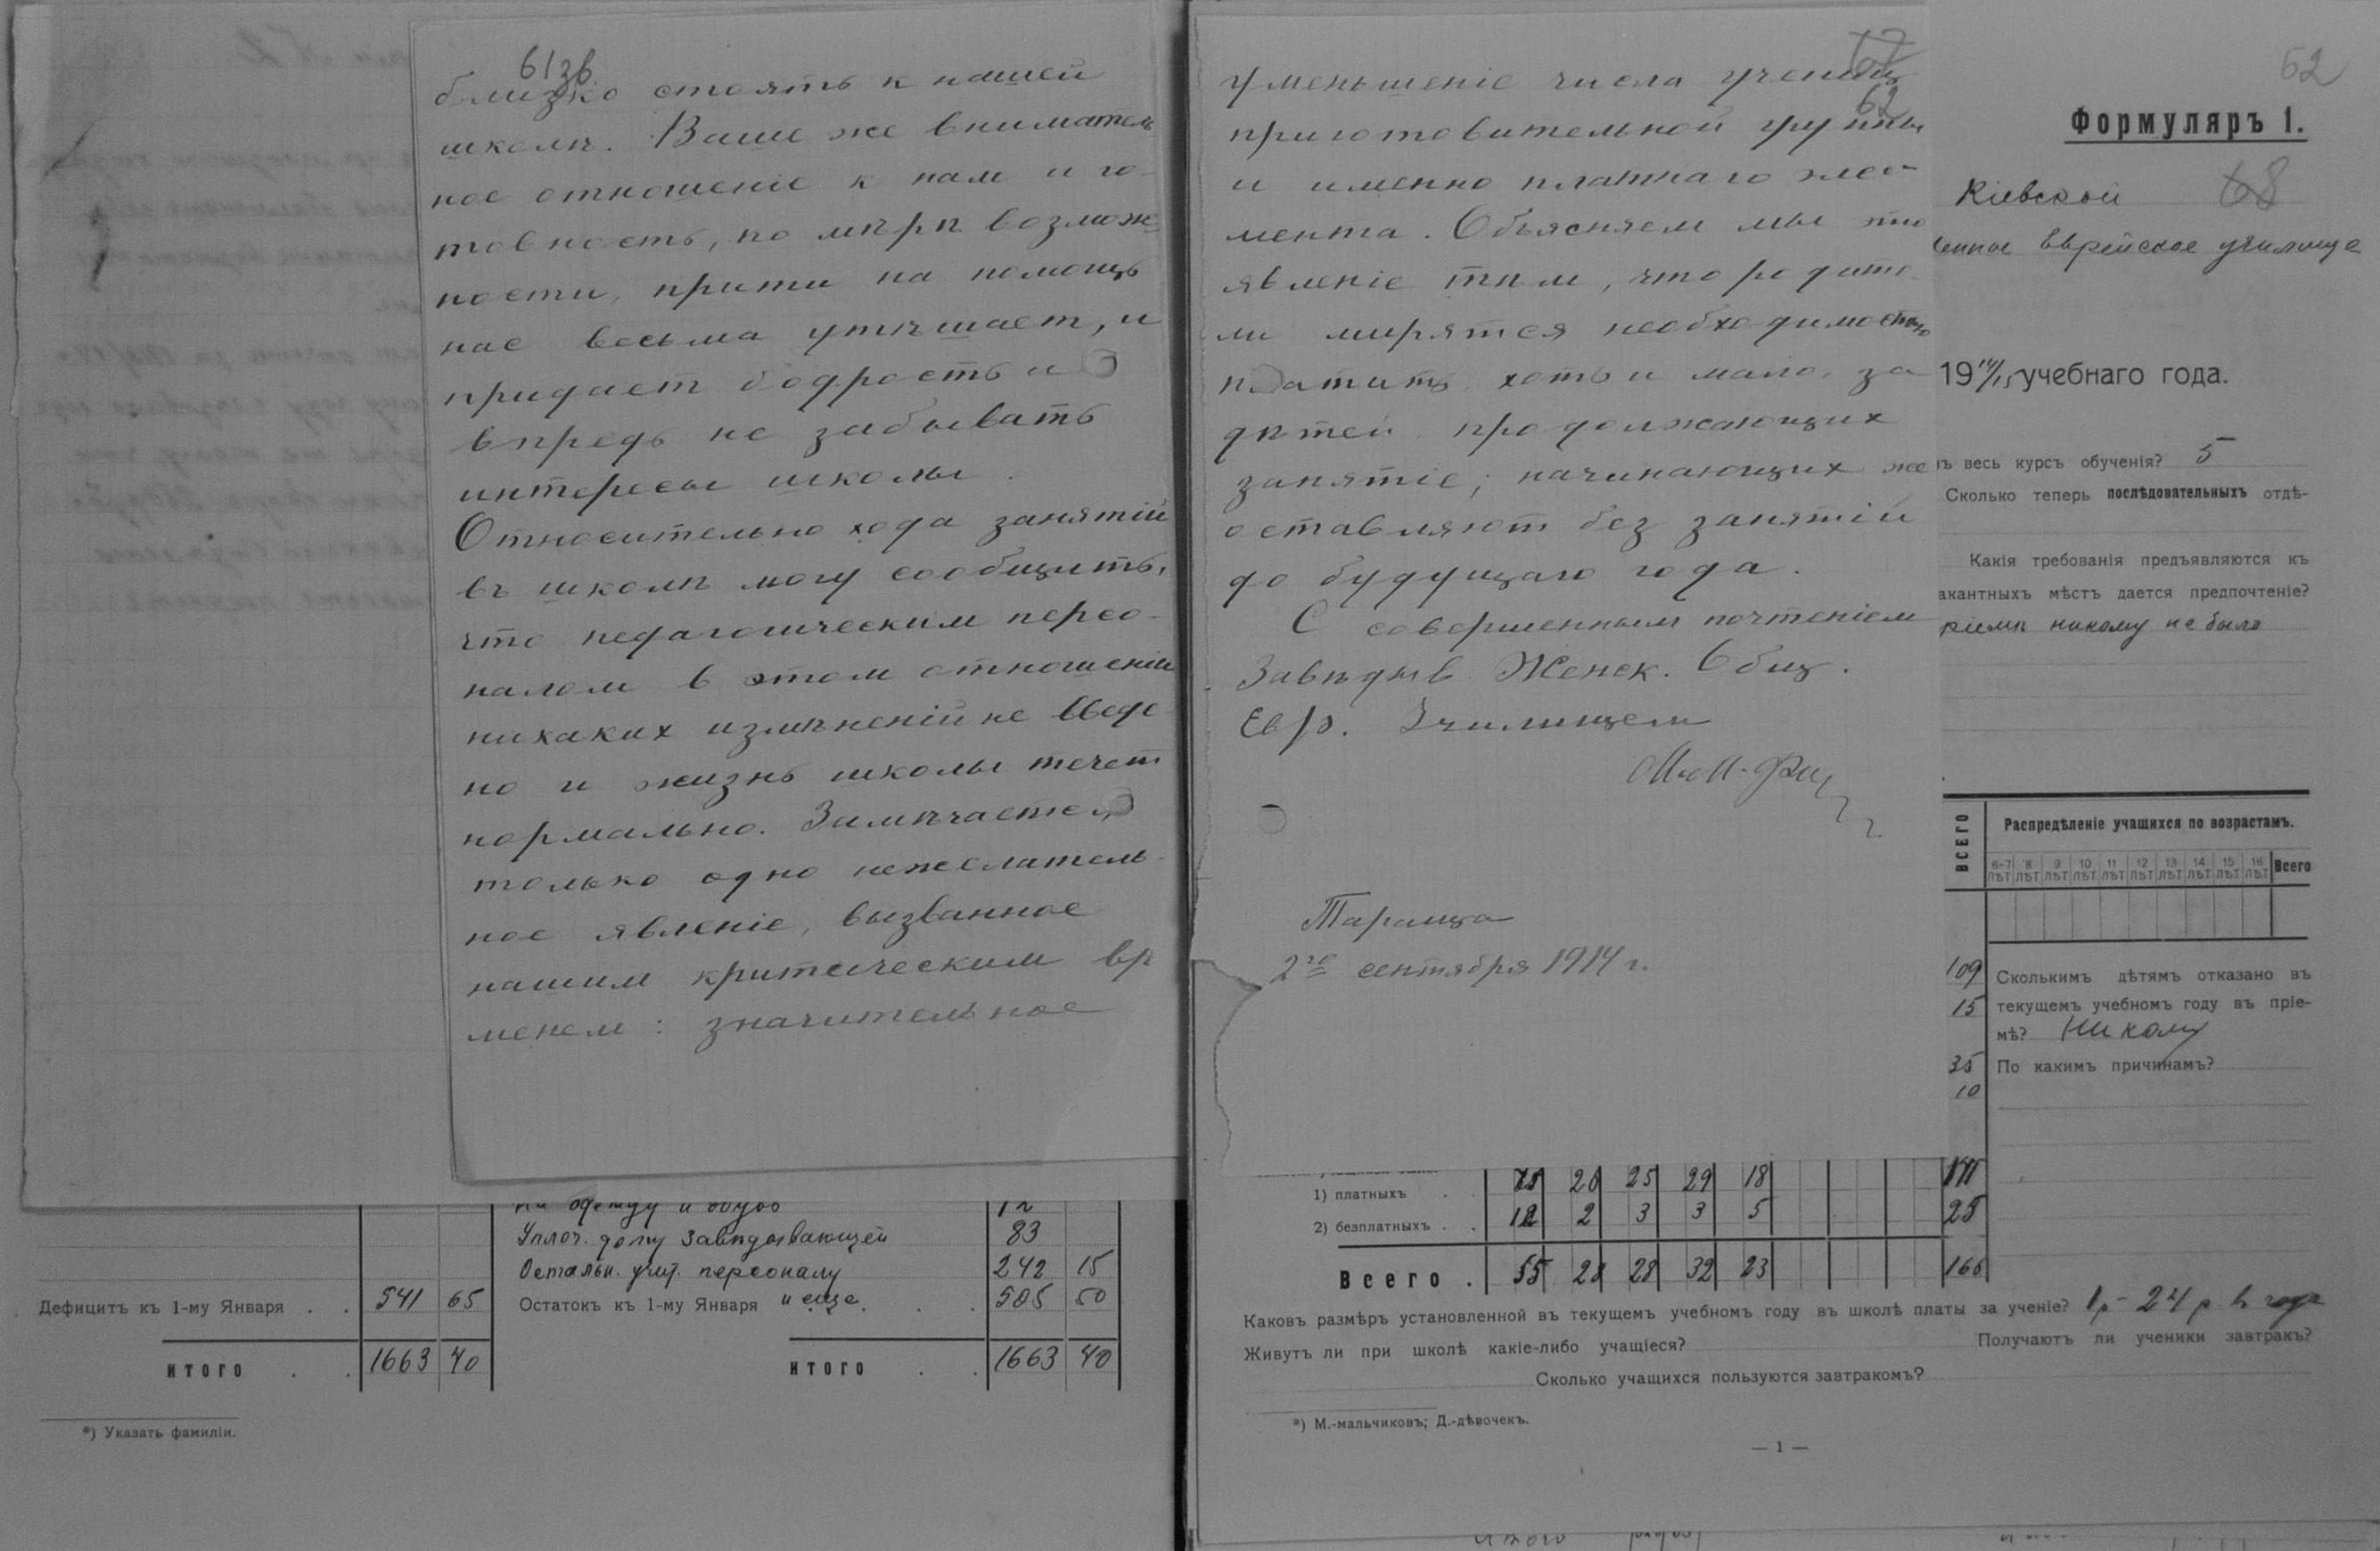 61зв.
близко стоять к нашей
школѣ. Ваше же вниматель
ное отношеніе к нам и го-
товность, по мѣрѣ возмож
ности, прити на помощь
нас весьма утѣшает, и
придает бодрость и
впредь не забывать
интересы школы.
Относительно хода занятій
въ школѣ могу сообщить,
что педагогическим персо-
налом в этом отношеніи
никаких измѣненій не введе
но и жизнь школы течет
нормально. Замѣчается
только одно нежелатель-
ное явленіе, вызванное
нашим критическим вр
менем: значительное
на одежду и обувь 12
Уплоч. долгу Завѣдывающей 83
Остальн. учит. персоналу 242 15
Дефицитъ къ 1-му Января . . 541 65
Остатокъ къ 1-му Января и еще . . 505 50
ИТОГО . . 1663 40
ИТОГО . . 1663 40
*) Указать фамиліи.
67
62
уменьшеніе числа учениц
приготовительной группы
и именно платнаго эле-
мента. Объясняем мы это
явленіе тѣм, что родите
ли мирятся необходимостью
платить, хоть и мало, за
дѣтей продолжающих
занятіе; начинающих же
оставляют без занятій
до будущаго года.
С совершенным почтеніем
Завѣдыв. Женск. Общ.
Евр. Училищем
Тараща
2го сентября 1914 г.
62
Формуляръ 1.
68
Кіевской
енное Еврейское училище
1914/15 учебнаго года.
ъ весь курсъ обученія? 5
Сколько теперь послѣдовательныхъ отдѣ-
Какія требованія предъявляются къ
акантныхъ мѣстъ дается предпочтеніе?
ріемѣ никому не было
ВСЕГО
Распредѣленіе учащихся по возрастамъ.
6-7 лѣт 8 лѣт 9 лѣт 10 лѣт 11 лѣт 12 лѣт 13 лѣт 14 лѣт 15 лѣт 16 лѣт Всего
109
15
35
10
Сколькимъ дѣтямъ отказано въ
текущемъ учебномъ году въ пріе-
мѣ? Никому
По какимъ причинамъ?
1) платныхъ . . 26 25 29 18
2) безплатныхъ . . 12 2 3 3 5 25
Всего . 55 28 28 32 23 166
Каковъ размѣръ установленной въ текущемъ учебномъ году въ школѣ платы за ученіе? 1р - 24 р. в год
Живутъ ли при школѣ какіе-либо учащіеся? Получаютъ ли ученики завтракъ?
Сколько учащихся пользуются завтракомъ?
*) М.-мальчиковъ; Д.-дѣвочекъ.
— 1 —